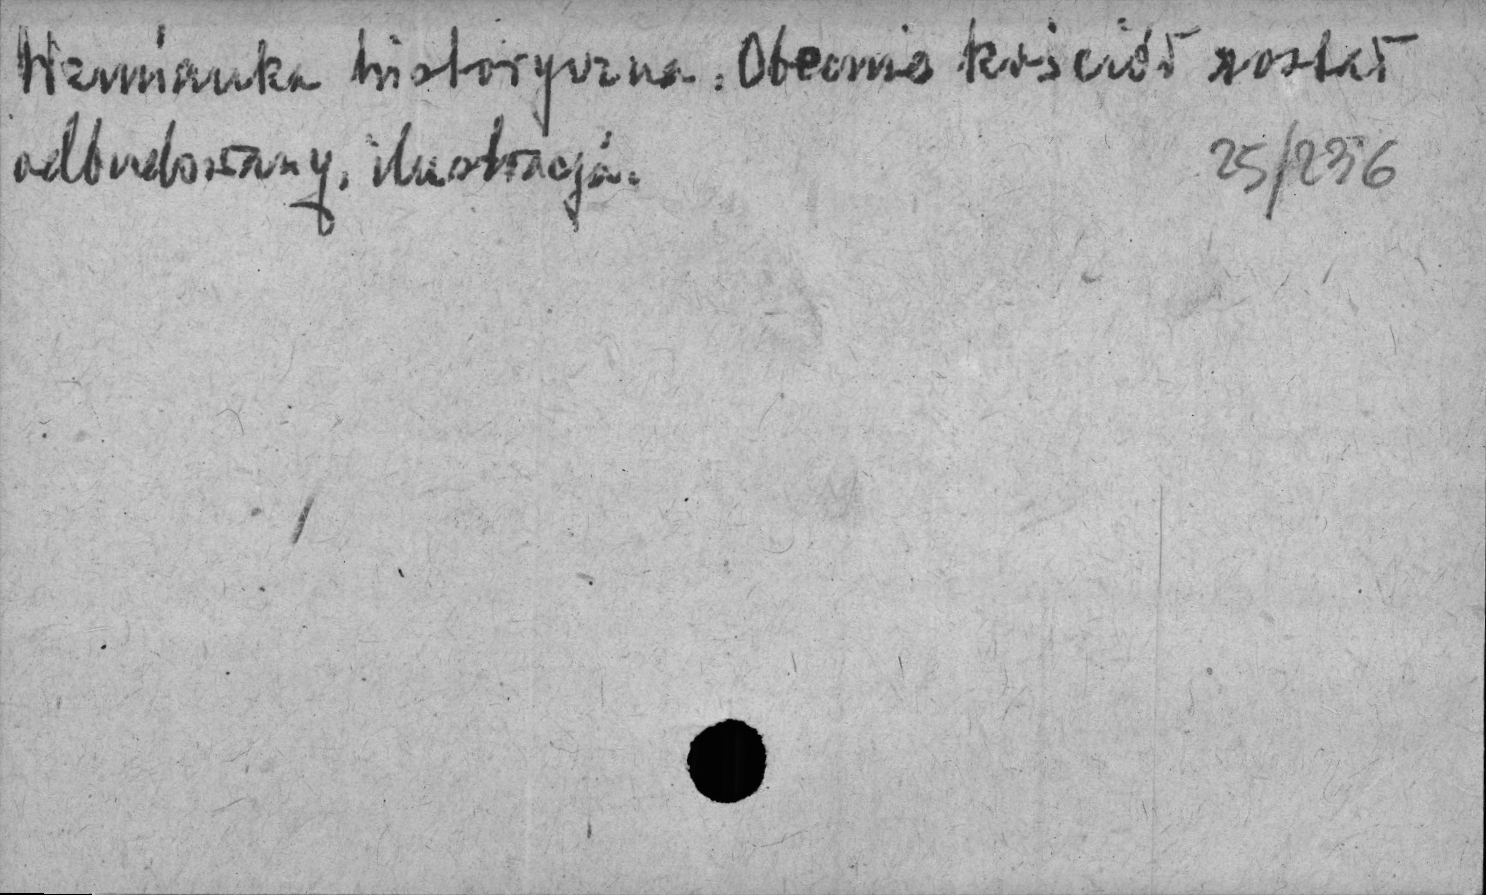 Wzmianka historyczna. Obecnie kościół został
odbudowany, ilustracja.
25/2356